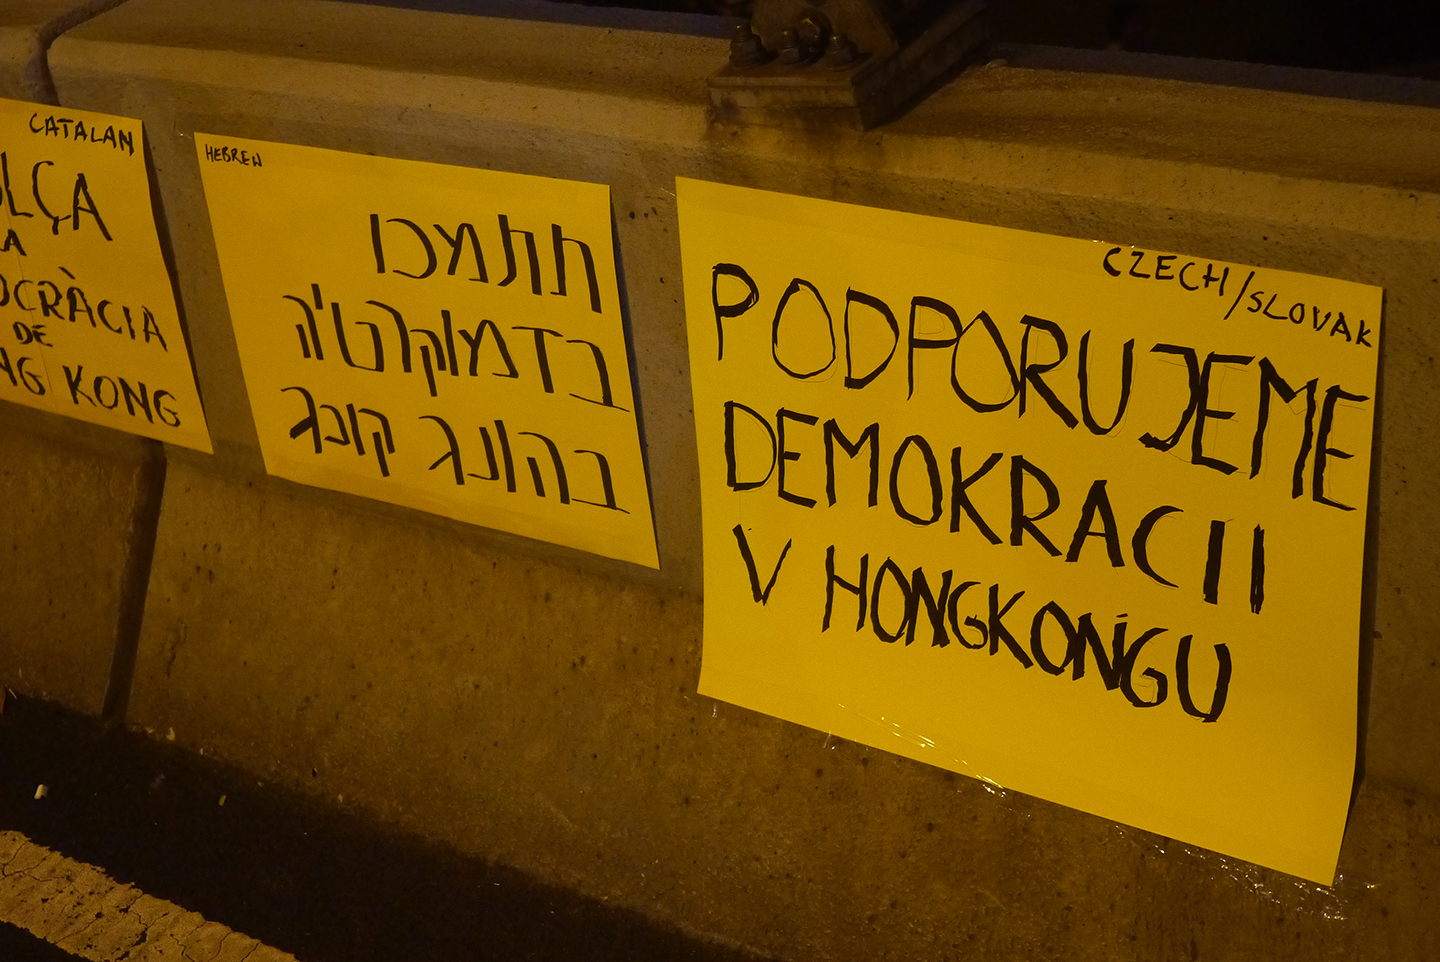 CATALAN
LÇA
LA
OCRÀCIA
DE
NG KONG
HEBREW
תתמכו
בדמוקרטיה
בהונג קונג
CZECH/SLOVAK
PODPORUJEME
DEMOKRACII
V HONGKONGU